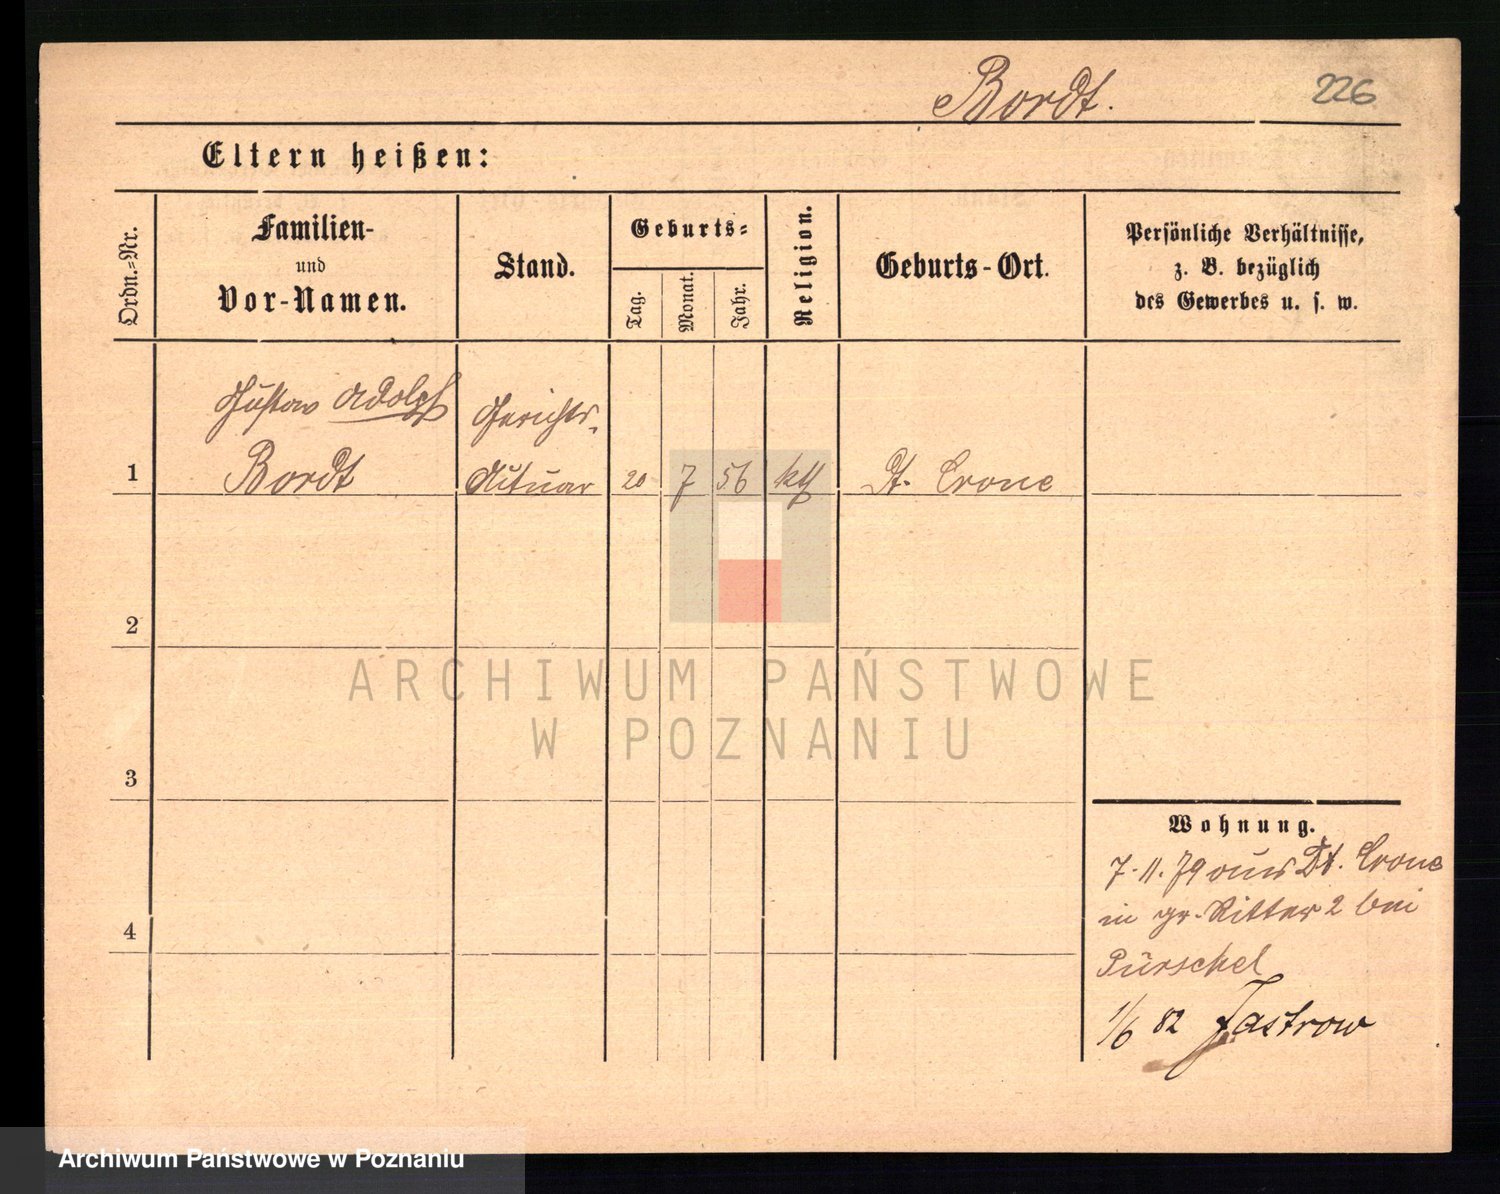 Bordt.
226
Eltern heißen:
Ordn.-Nr.
Familien-
und
Vor-Namen.
Stand.
Geburts-
Tag.
Monat.
Jahr.
Religion.
Geburts-Ort.
Persönliche Verhältnisse,
z. B. bezüglich
des Gewerbes u. s. w.
Gustav Adolph
Bordt
Gerichts-
Aktuar
1
20
7
56
kth
Dt. Crone
2
3
4
Wohnung.
7.11.79 aus Dt. Crone
in gr. Ritter 2 bei
Pürschel
1/6 82 Jastrow
ARCHIWUM PAŃSTWOWE
W POZNANIU
Archiwum Państwowe w Poznaniu